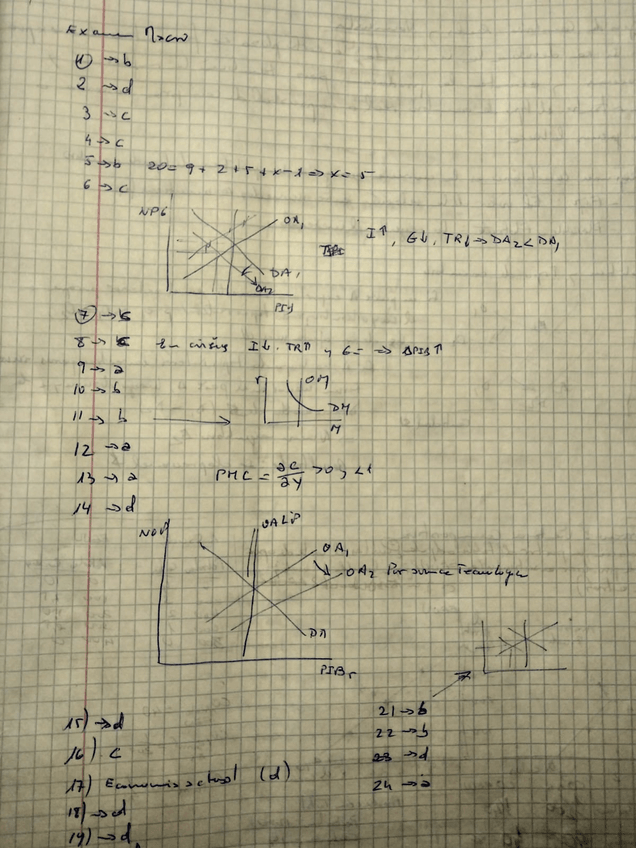 Examen Macro
1 → b
2 → d
3 → c
4 → c
5 → b 20 = 9 + 2 + 5 + x - 1 ⇒ x = 5
6 → c
NPG
OA₁
I↑, G↓, TR↓ ⇒ DA₂ < DA₁
DA₁
DA₂
7 →
8 → En crisis I↓ TR↑ y G= ⇒
9 → a
10 → b
r OM
11 → b
DM
M
12 → a
13 → a PMC = ∂C/∂Y >0, <1
14 → d
OALP
OA₁
OA₂ Por avance Tecnologico
DA
PIBr
15) → d
16) c
17) (d)
18) → d
19) → d
21 → b
22 → b
23 → d
24 → a